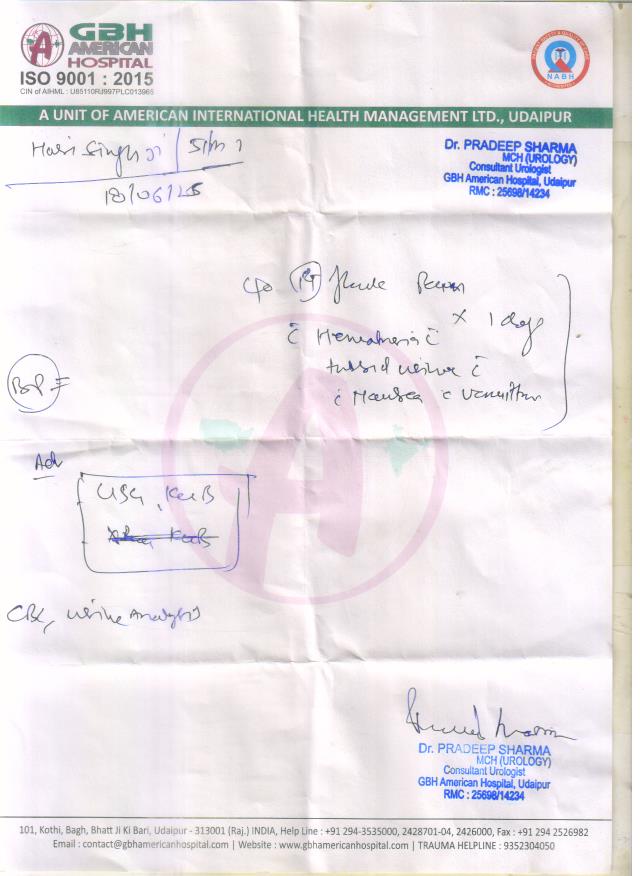 GBH
AMERICAN
HOSPITAL
ISO 9001 : 2015
CIN of AIHML : U85110RJ997PLC013965
NABH
A UNIT OF AMERICAN INTERNATIONAL HEALTH MANAGEMENT LTD., UDAIPUR
Hari Singh ji
18/06/25
Dr. PRADEEP SHARMA
MCH (UROLOGY)
Consultant Urologist
GBH American Hospital, Udaipur
RMC : 25698/14234
c/o Rt flank Pain
x 1 day
c̄ Hematuria c̄
turbid urine c̄
c̄ Nausea c̄ vomitting
BP
Adv
USG, KUB
KUB
CBC, urine Analysis
Dr. PRADEEP SHARMA
MCH (UROLOGY)
Consultant Urologist
GBH American Hospital, Udaipur
RMC : 25698/14234
101, Kothi, Bagh, Bhatt Ji Ki Bari, Udaipur - 313001 (Raj.) INDIA, Help Line : +91 294-3535000, 2428701-04, 2426000, Fax : +91 294 2526982
Email : contact@gbhamericanhospital.com | Website : www.gbhamericanhospital.com | TRAUMA HELPLINE : 9352304050